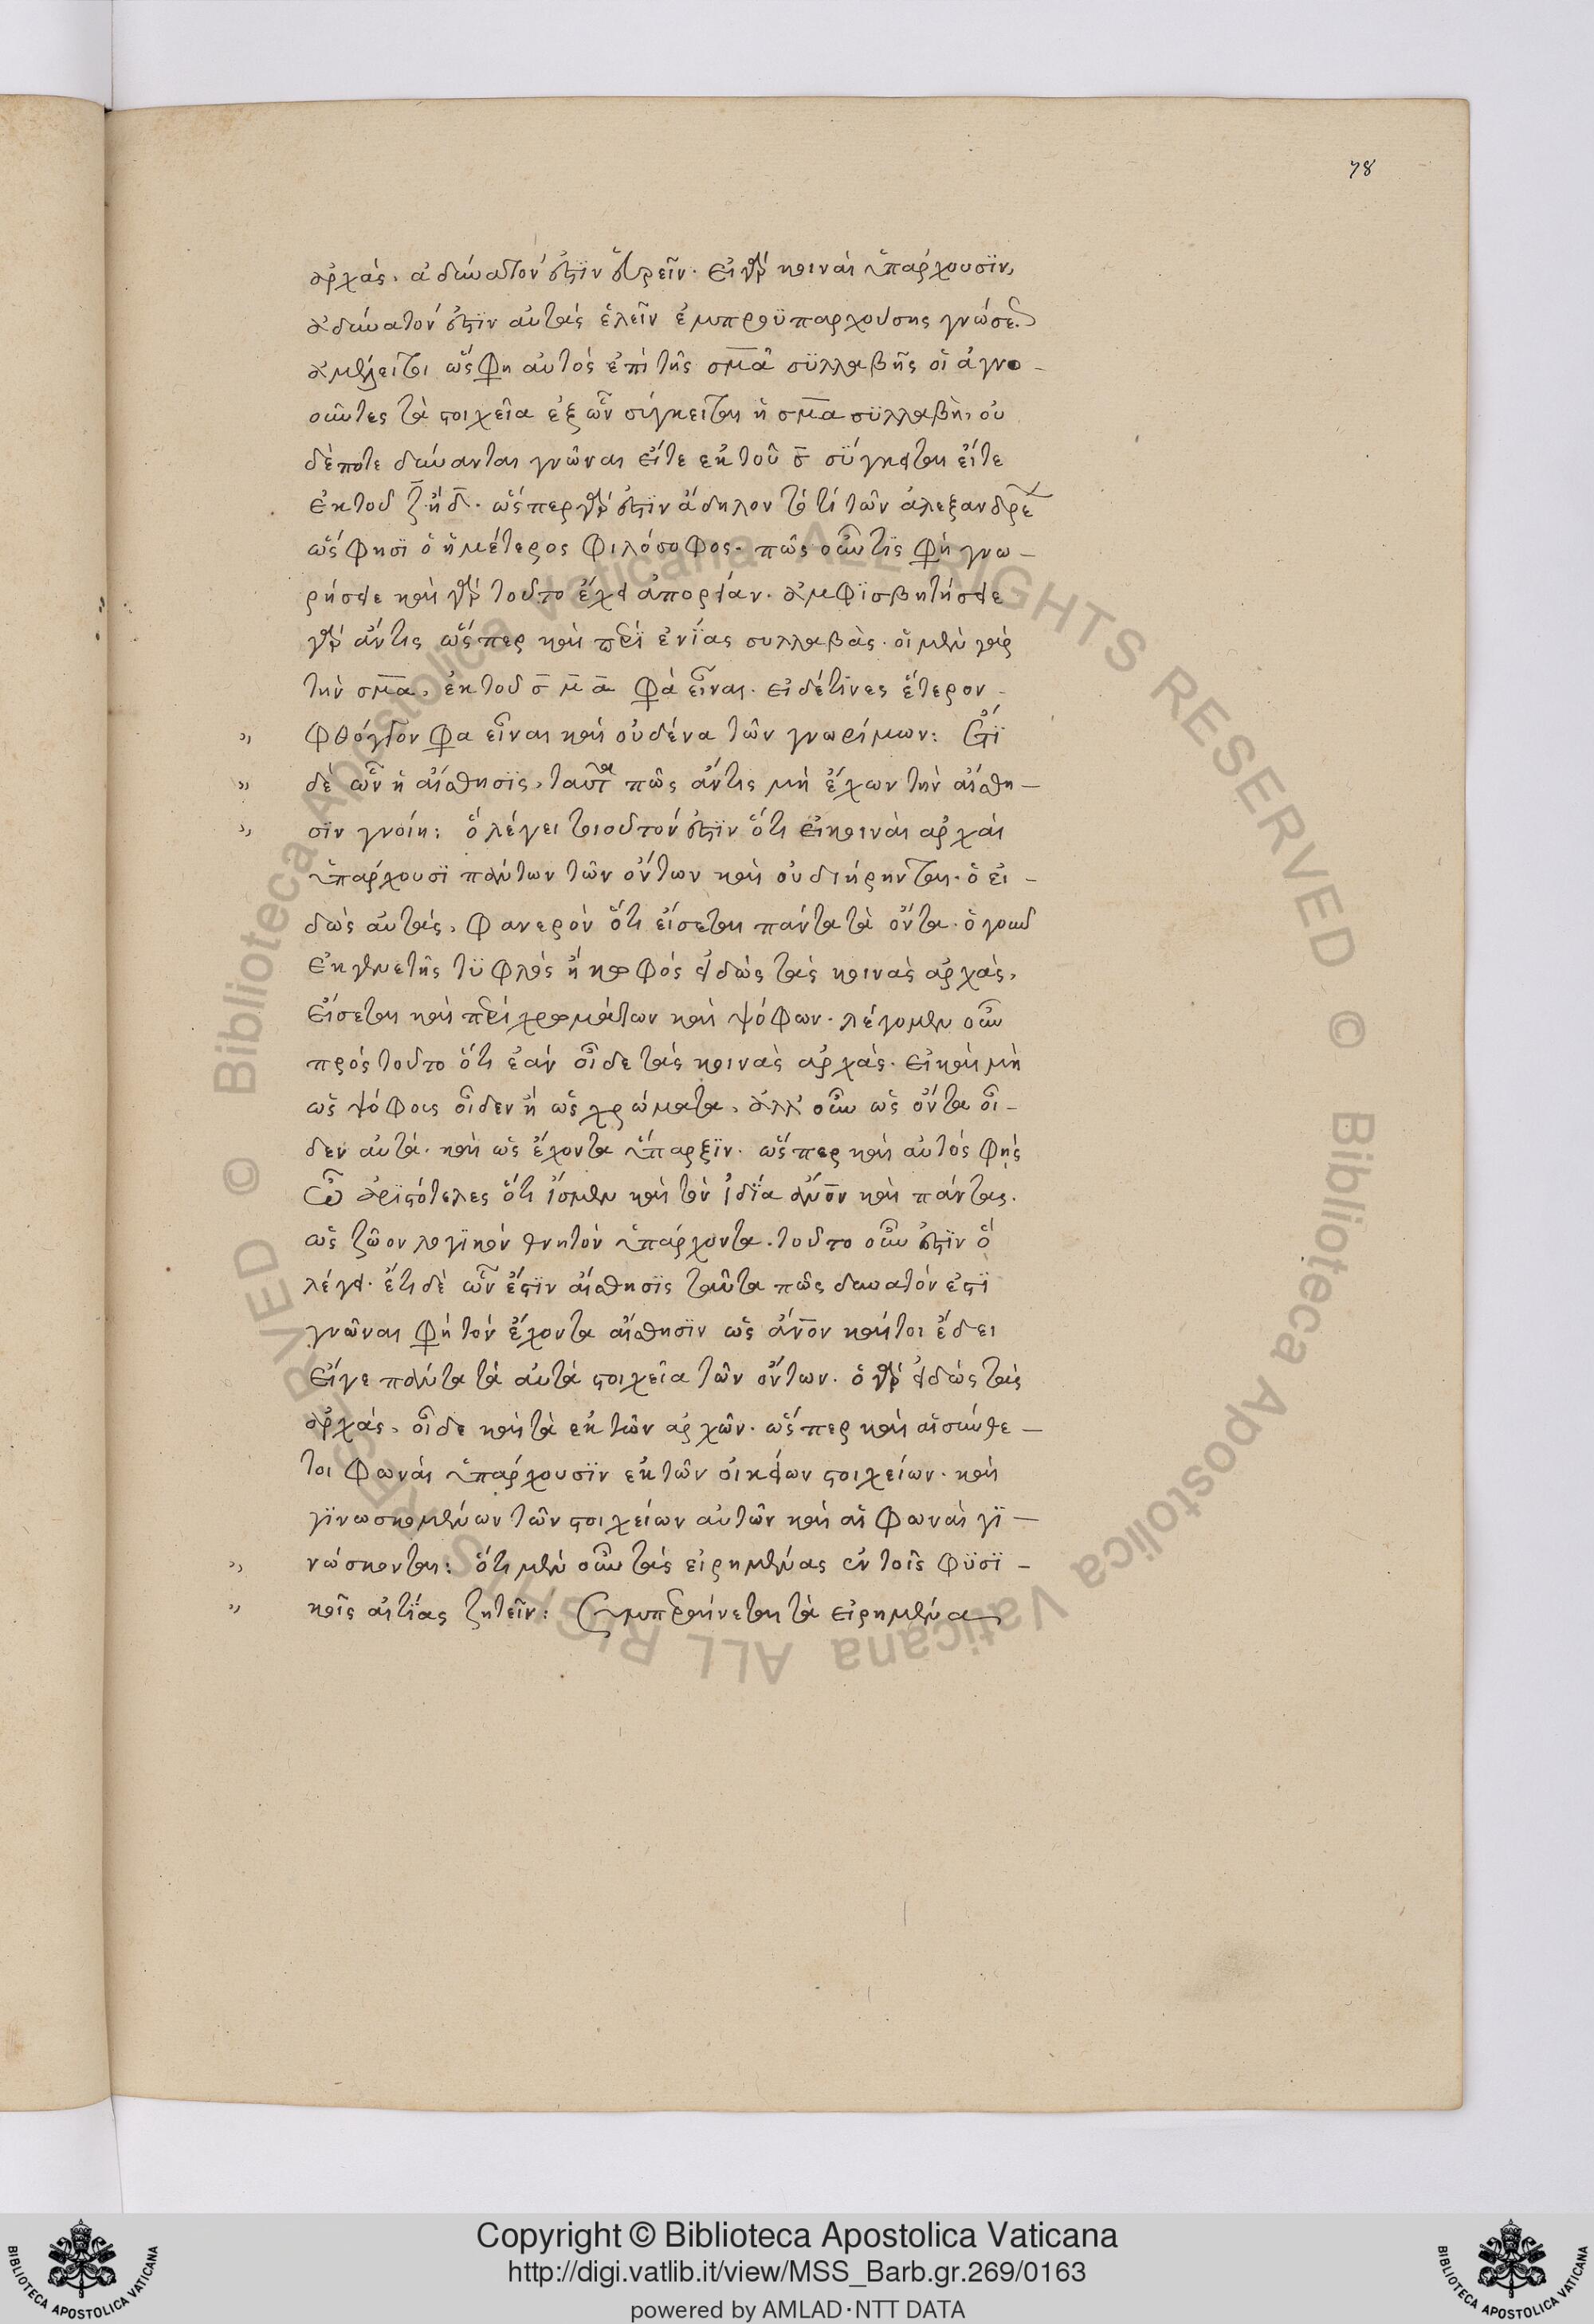 78
ἀρχάς. ἀδύνατόν ἐστιν εὑρεῖν. εἰ γὰρ κοιναὶ ὑπάρχουσϊν,
ἀδύνατόν ἐστιν αὐτὰς ἑλεῖν ἐμπροϋπαρχούσης γνώσε
ἀμέλειτοι ὥς φη αὐτὸς ἐπὶ τῆς σμα σϋλλαβῆς οἱ ἀγνο-
οῦντες τὰ στοιχεῖα ἐξ ὧν σύγκειται ἡ σμα σϋλλαβὴ, οὐ
δέποτε δύνανται γνῶναι εἴτε ἐκ τοῦ σ σϋγκειται εἴτε
ἐκ τοῦ ζ ἢ δ. ὥσπερ γάρ ἐστιν ἄδηλον τὸ τί τῶν ἀλεξανδρε
ὥς φησϊ ὁ ἡμέτερος φιλόσοφος. πῶς οὖν τϊς φὴ γνω-
ρήσειε καὶ γὰρ τοῦτο ἔχει ἀπορίαν. ἀμφϊσβητήσειε
γὰρ ἄν τις ὥσπερ καὶ περὶ ἐνίας συλλαβὰς. οἱ μὲν γὰρ
τὴν σμα, ἐκ τοῦ σ μ α φὰ εἶναι. εἰ δέ τϊνες ἕτερον
φθόγγον φα εἶναι καὶ οὐδένα τῶν γνωρίμων: ἔτϊ
δὲ ὧν ἡ αἴσθησϊς, ταῦτα πῶς ἄν τις μὴ ἔχων τὴν αἴσθη-
σϊν γνοίη: ὃ λέγει τοιοῦτόν ἐστϊν ὅτι εἰ κοιναὶ ἀρχαὶ
ὑπάρχουσϊ πάντων τῶν ὄντων καὶ οὐ διήρηνται. ὁ εἰ-
δὼς αὐτὰς, φανερὸν ὅτι εἴσεται πάντα τὰ ὄντα. ὁ γοῦν
ἐκ γενετῆς τϋφλὸς ἢ κωφὸς εἰδὼς τὰς κοινὰς ἀρχὰς,
εἴσεται καὶ περὶ χρωμάτων καὶ ψόφων. λέγομεν οὖν
πρὸς τοῦτο ὅτι ἐὰν οἶδε τὰς κοινὰς ἀρχὰς. εἰ καὶ μὴ
ὡς ψόφους οἶδεν ἢ ὡς χρώματα, ἀλλ' οὖν ὡς ὄντα οἶ-
δεν αὐτά. καὶ ὡς ἔχοντα ὕπαρξϊν. ὥσπερ καὶ αὐτὸς φῂς
ὦ ἀρϊστότελες ὅτι ἴσμεν καὶ τὸν ἰδία ἄνον καὶ πάντας.
ὡς ζῶον λογϊκὸν θνητὸν ὑπάρχοντα. τοῦτο οὖν ἐστϊν ὃ
λέγει. ἔτι δὲ ὧν ἔστϊν αἴσθησϊς ταῦτα πῶς δυνατόν ἐστϊ
γνῶναι φὴ τὸν ἔχοντα αἴσθησϊν ὡς ἄνον καίτοι ἔδει
εἴγε πάντα τὰ αὐτὰ στοιχεῖα τῶν ὄντων. ὁ γὰρ εἰδὼς τὰς
ἀρχάς, οἶδε καὶ τὰ ἐκ τῶν ἀρχῶν. ὥσπερ καὶ αἱ σύνθε-
τοι φωναὶ ὑπάρχουσϊν ἐκ τῶν οἰκείων στοιχείων. καὶ
γϊνωσκομένων τῶν στοιχείων αὐτῶν καὶ αἱ φωναὶ γϊ-
νώσκονται: ὅτι μὲν οὖν τὰς εἰρημένας ἐν τοῖς φϋσϊ-
κοῖς αἰτίας ζητεῖν: συμπεραίνεται τὰ εἰρημένα
Copyright © Biblioteca Apostolica Vaticana
http://digi.vatlib.it/view/MSS_Barb.gr.269/0163
powered by AMLAD·NTT DATA